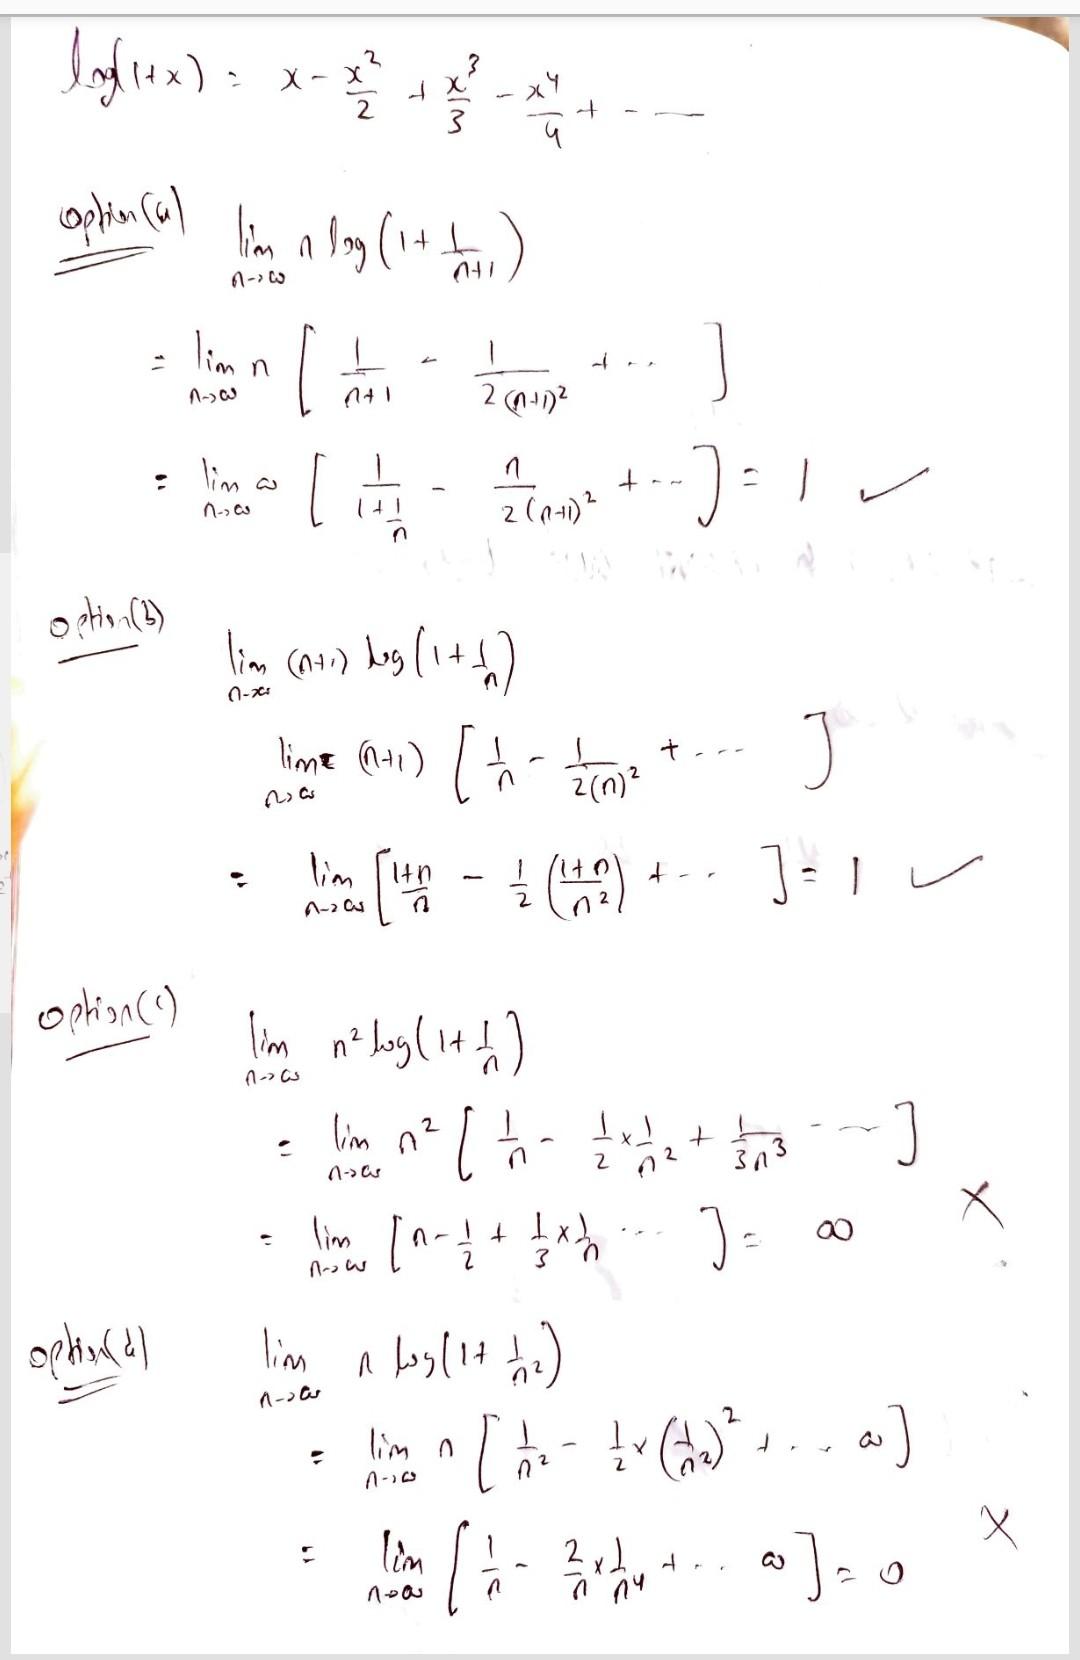 log(1+x) = x - x²/2 + x³/3 - x⁴/4 + - —
option(a)
lim n→∞ n log (1 + 1/n+1)
= lim n→∞ n [ 1/n+1 - 1/2(n+1)² + .. ]
= lim n→∞ ∞ [ 1/1+1/n - n/2(n+1)² + --- ] = 1 ✓
option(b)
lim n→∞ (n+1) log (1 + 1/n)
lim n→∞ (n+1) [ 1/n - 1/2(n)² + ---- ]
= lim n→∞ [ 1+n/n - 1/2 (1+n/n²) + --- ] = 1 ✓
option(c)
lim n→∞ n² log(1 + 1/n)
= lim n→∞ n² [ 1/n - 1/2 × 1/n² + 1/3n³ - — ]
= lim n→∞ [ n - 1/2 + 1/3 × 1/n ... ] = ∞ ×
option(d)
lim n→∞ n log(1 + 1/n²)
= lim n→∞ n [ 1/n² - 1/2 × (1/n²)² + ... ∞ ]
= lim n→∞ [ 1/n - 2/n × 1/n⁴ + ... ∞ ] = 0 ×